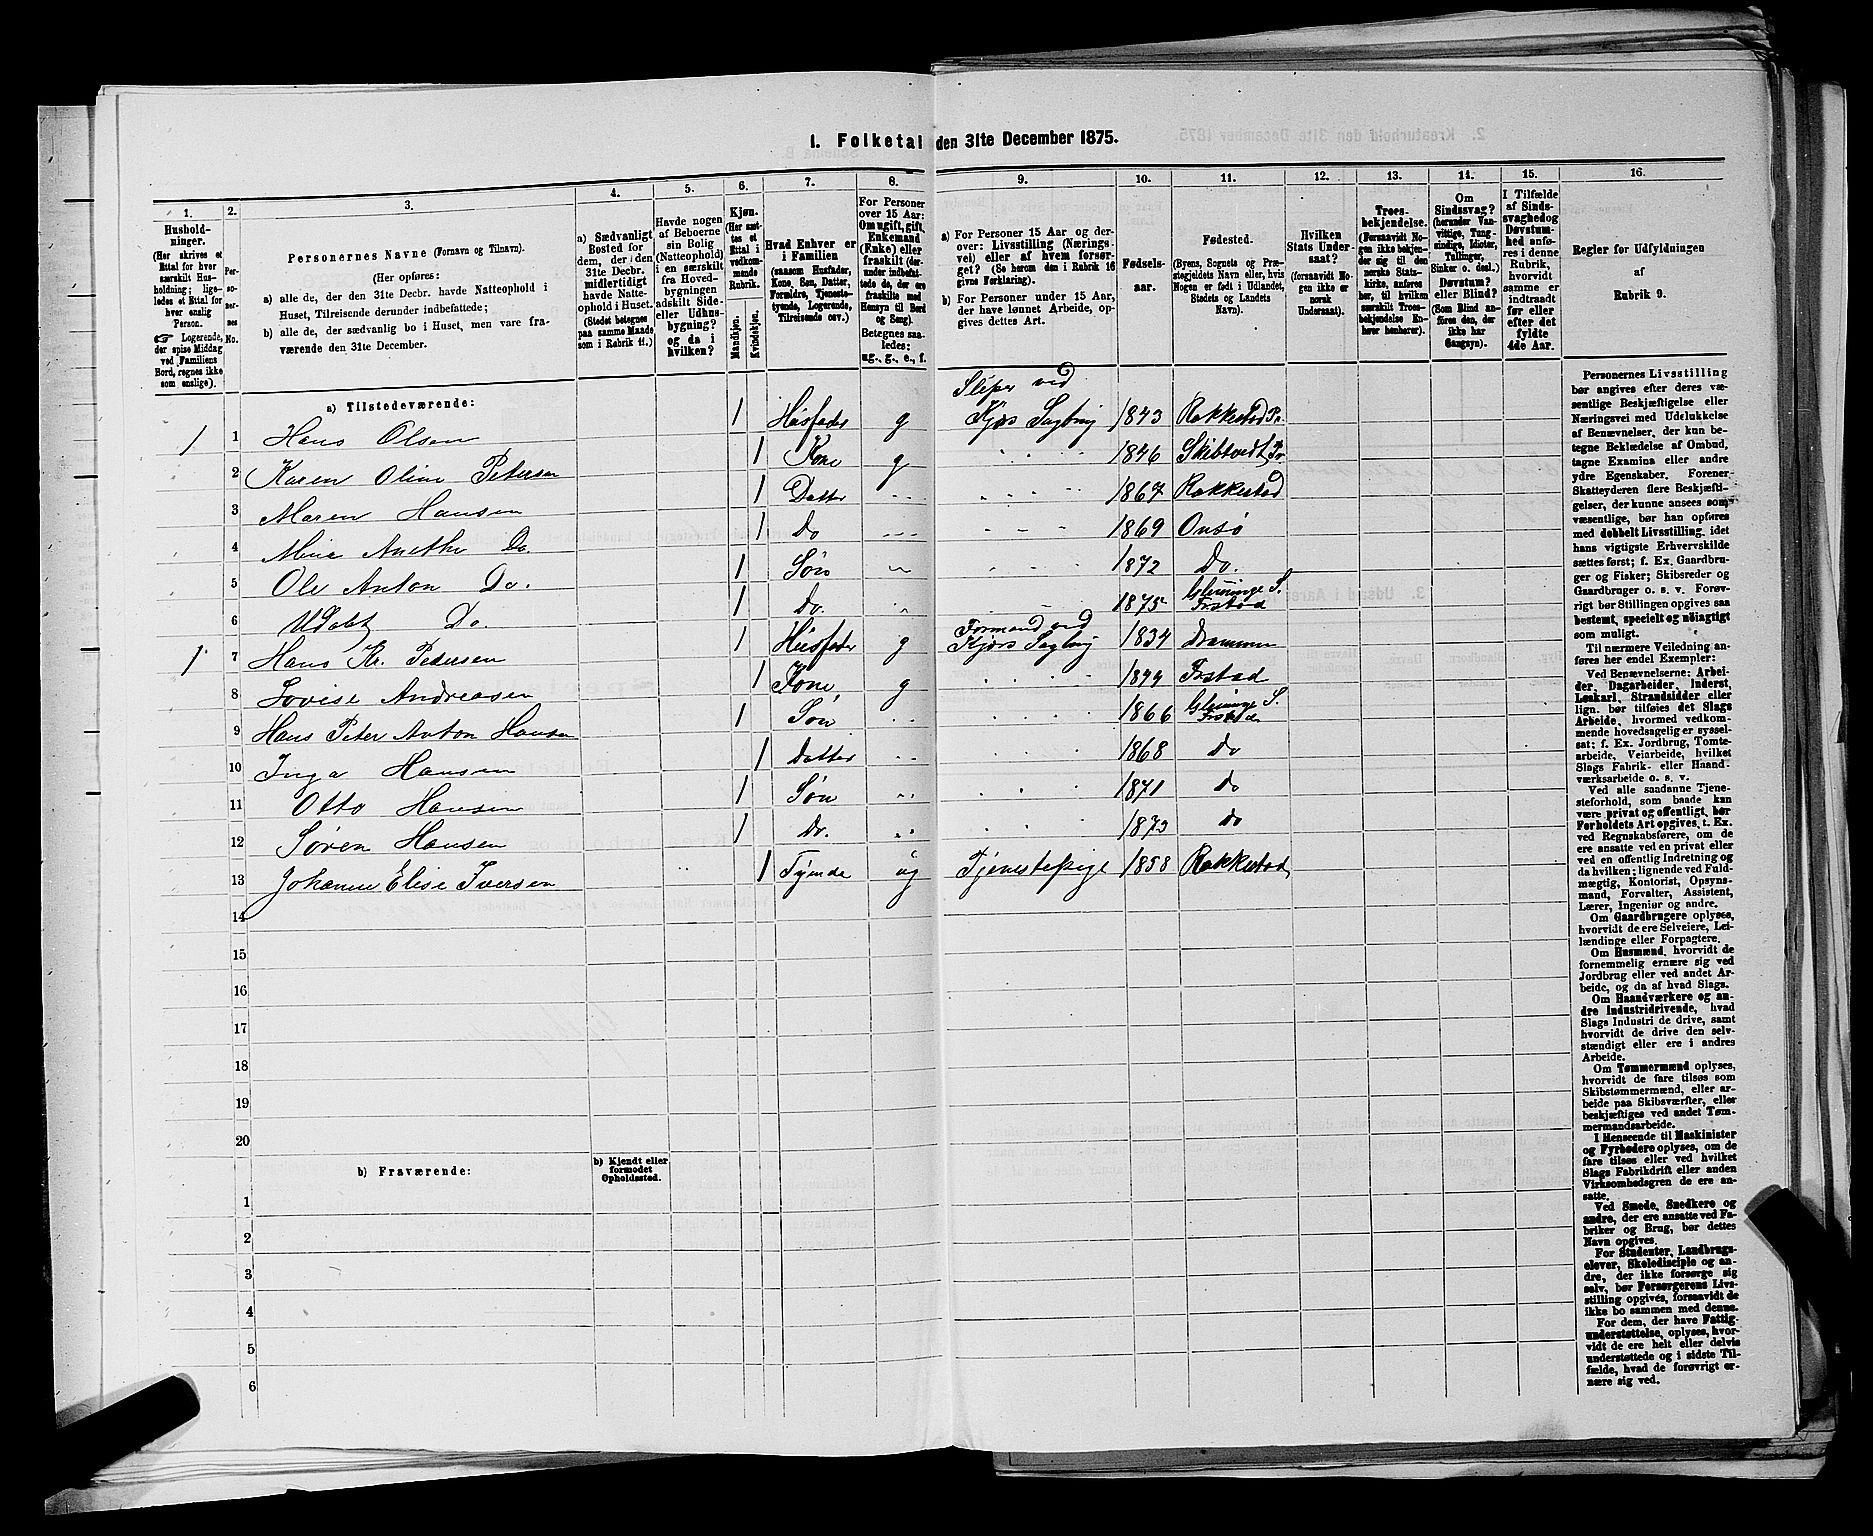 1. Folketal den 31te December 1875.
1. 2. 3. 4. 5. 6. 7. 8. 9. 10. 11. 12. 13. 14. 15. 16.
Husholdninger.
(Her skrives et
Ettal for hver
særskilt Hus-
holdning; lige-
ledes et Ettal for
hver enslig
Person.
☞ Logerende,
der spise Middag
ved Familiens
Bord, regnes ikke
som enslige).
Per-
so-
ner-
nes
No.
Personernes Navne (Fornavn og Tilnavn).
(Her opføres:
a) alle de, der den 31te Decbr. havde Natteophold i
Huset, Tilreisende derunder indbefattede;
b) alle de, der sædvanlig bo i Huset, men vare fra-
værende den 31te December.
a) Sædvanligt
Bosted for
dem, der i den
31te Decbr.
midlertidigt
havde Natte-
ophold i Huset.
(Stedet betegnes
paa samme Maade
som i Rubrik 11.)
Havde nogen
af Beboerne
sin Bolig
(Natteophold)
i en særskilt
fra Hoved-
bygningen
adskilt Side-
eller Udhus-
bygning?
og da i
hvilken?
Kjøn.
(Her sæt-
tes et
Ettal i
vedkom-
mende
Rubrik.
Mandkjøn.
Kvindekjøn.
Hvad Enhver er
i Familien
(saasom Husfader,
Kone, Søn, Datter,
Forældre, Tjeneste-
tyende, Logerende,
Tilreisende osv.)
For Personer
over 15 Aar:
Om ugift, gift,
Enkemand
(Enke) eller
fraskilt (der-
under indbefat-
tede de, der ere
fraskilte med
Hensyn til Bord
og Seng).
Betegnes saa-
ledes:
ug., g., e., f.
a) For Personer 15 Aar og der-
over: Livsstilling (Nærings-
vei) eller af hvem forsør-
get? (Se herom den i Rubrik 16
givne Forklaring).
b) For Personer under 15 Aar,
der have lønnet Arbeide, op-
gives dettes Art.
Fødsels-
aar.
Fødested.
(Byens, Sognets og Præ-
stegjeldets Navn eller, hvis
Nogen er født i Udlandet,
Stedets og Landets
Navn).
Hvilken
Stats Under-
saat?
(forsaavidt No-
gen ikke er
norsk
Undersaat).
Troes-
bekjendelse.
(Forsaavidt No-
gen ikke bekjen-
der sig til den
norske Stats-
kirke, anføres
her, til hvilken
særskilt Troes-
bekjendelse En-
hver henhører).
Om
Sindssvag?
(herunder Van-
vittige, Tung-
sindige, Idioter,
Tullinger,
Sinker o. desl.)
Døvstum?
eller Blind?
(Som Blind an-
føres den, der
ikke har
Gangsyn).
I Tilfælde
af Sinds-
svaghed og
Døvstum-
hed anfø-
res i denne
Rubrik,
hvorvidt
samme er
indtraadt
før eller
efter det
fyldte
4de Aar.
Regler for Udfyldningen
af
Rubrik 9.
a) Tilstedeværende:
1 1 Hans Olsen 1 Husfader g Sliper ved Kjørs Sagbrug 1843 Rakkestad Pr.
2 Karen Oline Petersen 1 Kone g 1846 Skibtvedt Pr
3 Maren Hansen 1 Datter 1867 Rakkestad
4 Mina Anethe Do. 1 Do 1869 Onsø
5 Ole Anton Do. 1 Søn 1872 Do.
6 Do. 1 Do. 1875 Glemminge S. Frstad
1 7 Hans Kr. Pedersen 1 Husfader g Formand ved Kjørs Sagbrug 1834 Drammen
8 Lovise Andreasen 1 Kone g 1844 Frstad
9 Hans Peter Anton Hansen 1 Søn 1866 Glemminge S. Frstad
10 Inga Hansen 1 Datter 1868 Do
11 Otto Hansen 1 Søn 1871 Do
12 Søren Hansen 1 Do. 1873 Do
13 Johanne Elise Iversen 1 Tyende ug Tjenestepige 1858 Rakkestad
14
15
16
17
18
19
20
b) Fraværende:
b) Kjendt eller
formodet
Opholdssted.
1
2
3
4
5
6
Personernes Livsstilling
bør angives efter deres væ-
sentlige Beskjæftigelse eller
Næringsvei med Udelukkelse
af Benævnelser, der kun be-
tegne Beklædelse af Ombud,
tagne Examina eller andre
ydre Egenskaber. Forener
Skatteyderen flere Beskjæfti-
gelser, der kunne ansees som
væsentlige, bør han opføres
med dobbelt Livsstilling, idet
hans vigtigste Erhvervskilde
sættes først; f. Ex. Gaardbru-
ger og Fisker; Skibsreder og
Gaardbruger o. s. v. Forøv-
rigt bør Stillingen opgives saa
bestemt, specielt og nøiagtigt
som muligt.
Til nærmere Veiledning an-
føres her endel Exempler:
Ved Benævnelserne: Arbei-
der, Dagarbeider, Inderst,
Løskarl, Strandsidder eller
lign. bør tilføies det Slags
Arbeide, hvormed vedkom-
mende hovedsagelig er syssel-
sat; f. Ex. Jordbrug, Tomte-
arbeide, Veiarbeide, hvilket
Slags Fabrik- eller Haand-
værksarbeide o. s. v.
Ved alle saadanne Tjene-
steforhold, som baade kan
være privat og offentligt, bør
Forholdets Art opgives, t. Ex.
ved Regnskabsførere, om de
ere ansatte ved en privat eller
ved en offentlig Indretning og
da hvilken; lignende ved Fuld-
mægtig, Kontorist, Opsyns-
mand, Forvalter, Assistent,
Lærer, Ingeniør og andre.
Om Gaardbrugere oplyses,
hvorvidt de ere Selveiere, Lei-
lændinge eller Forpagtere.
Om Husmænd, hvorvidt de
fornemmelig ernære sig ved
Jordbrug eller ved andet Ar-
beide, og da af hvad Slags.
Om Haandværkere og an-
dre Industridrivende, hvad
Slags Industri de drive, samt
hvorvidt de drive den selv-
stændigt eller ere i andres
Arbeide.
Om Tømmermænd oplyses,
hvorvidt de fare tilsøs som
Skibstømmermænd, eller ar-
beide paa Skibsværfter, eller
beskjæftiges ved andet Tøm-
mermandsarbeide.
I Henseende til Maskinister
og Fyrbødere oplyses, om de
fare tilsøs eller ved hvilket
Slags Fabrikdrift eller anden
Virksomhedsgren de ere an-
satte.
Ved Smede, Snedkere og
andre, der ere ansatte ved Fa-
briker og Brug, bør dettes
Navn opgives.
For Studenter, Landbrugs-
elever, Skoledisciple og an-
dre, der ikke forsørge sig
selv, bør Forsørgerens Livs-
stilling opgives, forsaavidt de
ikke bo sammen med denne.
For dem, der have Fattig-
understøttelse, oplyses, hvor-
vidt de ere helt eller delvis
understøttede og i sidste Til-
fælde, hvad de forøvrigt er-
nære sig ved.